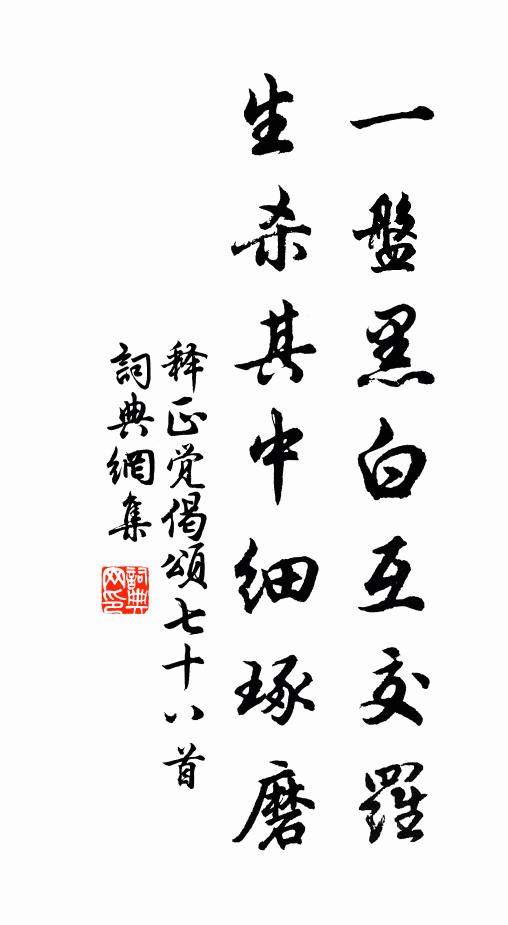 一盤黑白互交羅
生杀其中细琢磨
释正觉偈頌七十八首
詞典網集
詞典網印